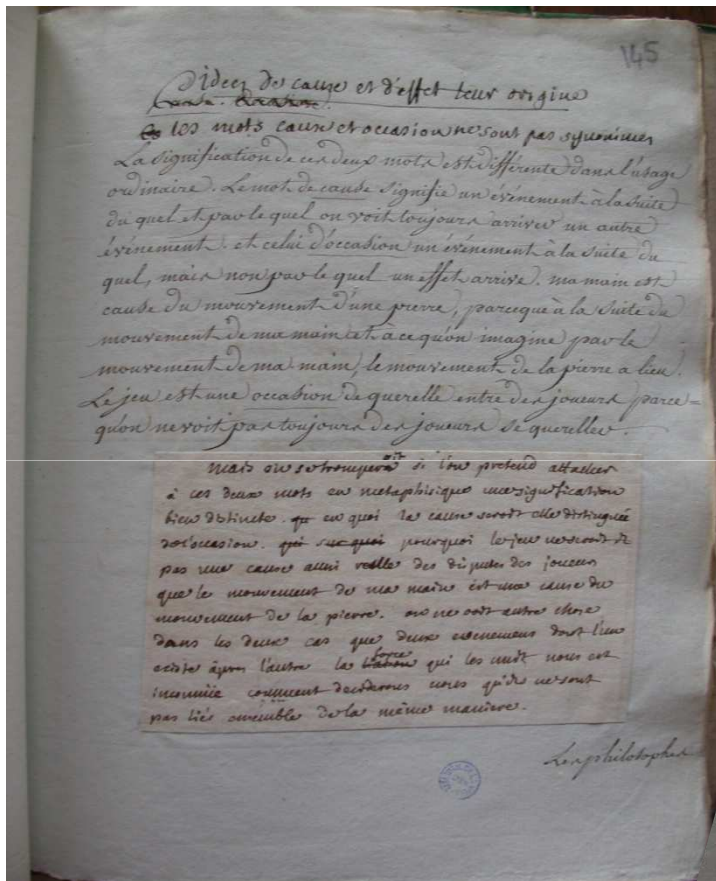 145
Idées de cause et d'effet leur origine
les mots cause et occasion ne sont pas synonimes
La signification de ces deux mots est différente dans l'usage
ordinaire. Le mot de cause signifie un événement à la suite
du quel et par le quel on voit toujours arriver un autre
événement. et celui d'occasion un événement à la suite du
quel, mais non par le quel un effet arrive. ma main est
cause du mouvement d'une pierre, parceque à la suite du
mouvement de ma main et à ce qu'on imagine par le
mouvement de ma main, le mouvement de la pierre a lieu.
Le jeu est une occasion de querelle entre des joueurs parce=
qu'on ne voit pas toujours des joueurs se quereller.
mais on se tromperait si l'on pretend attacher
à ces deux mots en metaphisique une signification
bien distincte. en quoi la cause seroit elle distinguée
de l'occasion. pourquoi le jeu ne seroit il
pas une cause aussi réelle des disputes des joueurs
que le mouvement de ma main est une cause du
mouvement de la pierre. on ne voit autre chose
dans les deux cas que deux evenemens dont l'un
existe après l'autre la force qui les unit nous est
inconnüe comment nous qu'ils ne sont
pas liés ensemble de la même maniere.
Les philosophes